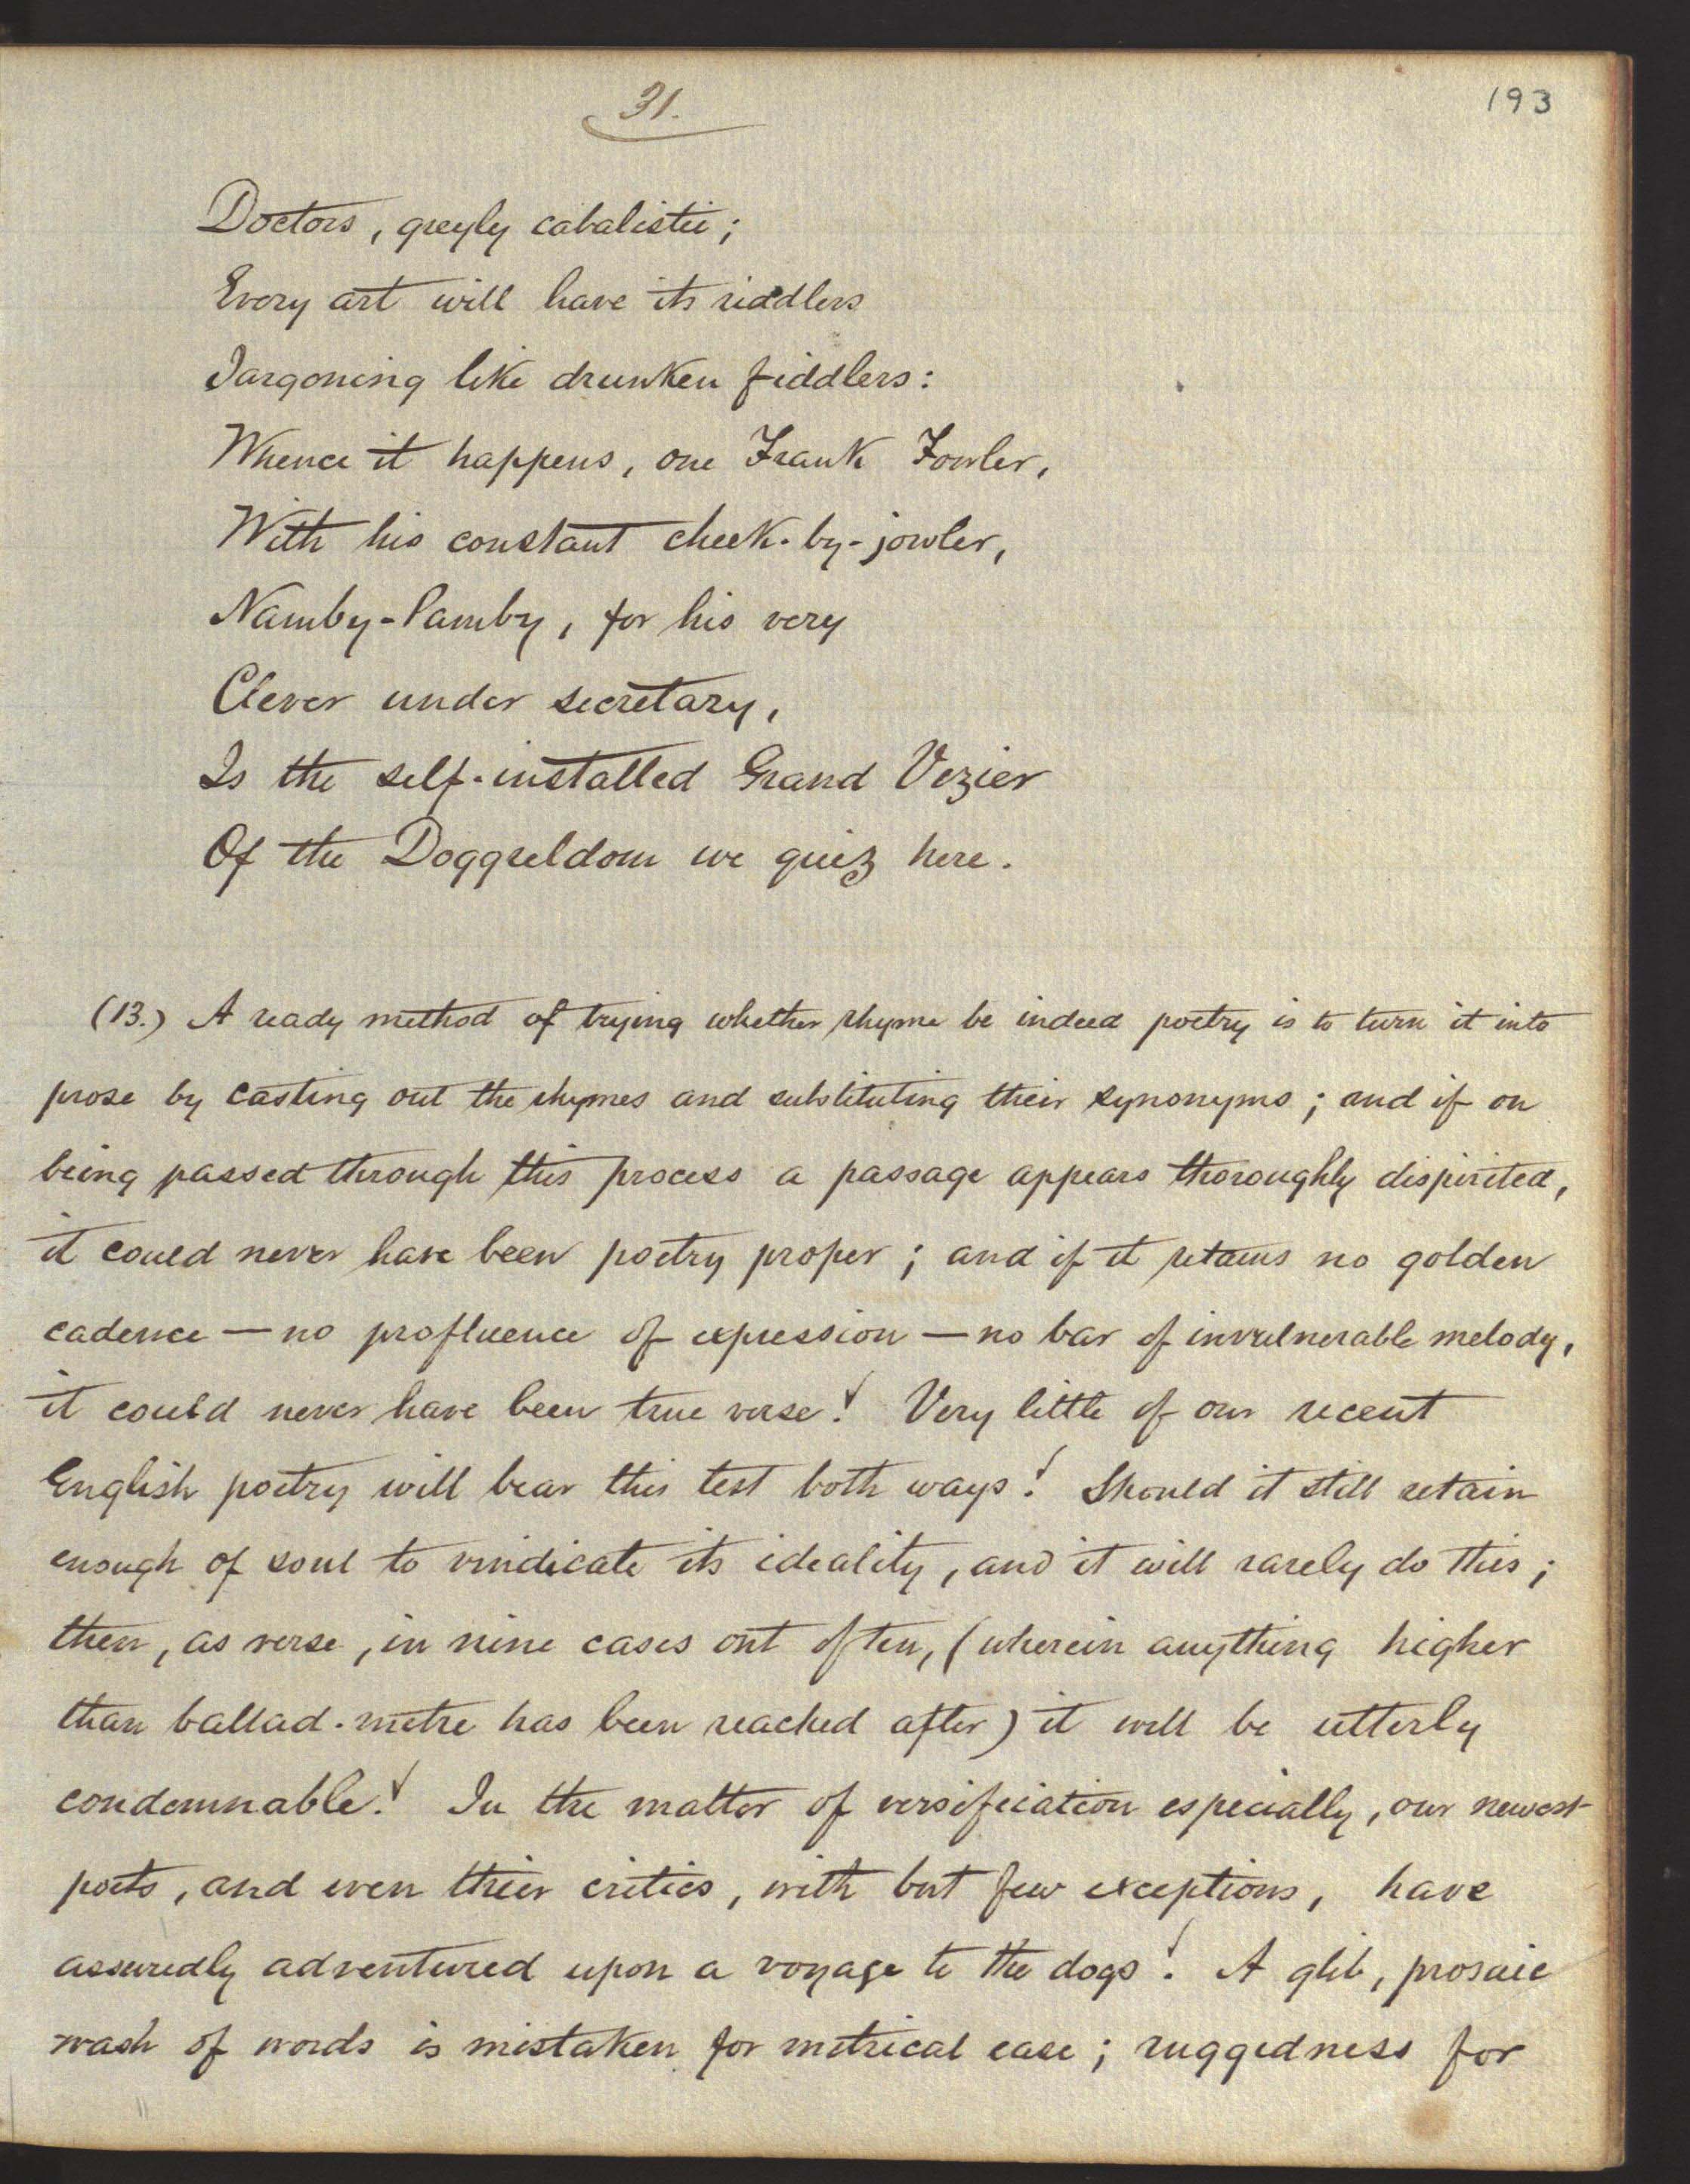 31.
193
Doctors, greyly cabalistic;
Every art will have its riddlers
Jargoning like drunken fiddlers:
Whence it happens, one Frank Fowler,
With his constant cheek-by-jowler,
Namby-Pamby, for his very
Clever under secretary,
Is the self-installed Grand Vezier
Of the Doggreldom we quiz here.
(13.) A ready method of trying whether rhyme be indeed poetry is to turn it into
prose by casting out the rhymes and substituting their synonyms; and if on
being passed through this process a passage appears thoroughly dispirited,
it could never have been poetry proper; and if it retains no golden
cadence — no profluence of expression — no bar of invulnerable melody,
it could never have been true verse! Very little of our recent
English poetry will bear this test both ways! Should it still retain
enough of soul to vindicate its ideality, and it will rarely do this;
then, as verse, in nine cases out of ten, (wherein anything higher
than ballad-metre has been reached after) it will be utterly
condemnable! In the matter of versification especially, our newest
poets, and even their critics, with but few exceptions, have
assuredly adventured upon a voyage to the dogs! A glib, prosaic
wash of words is mistaken for metrical ease; ruggedness for